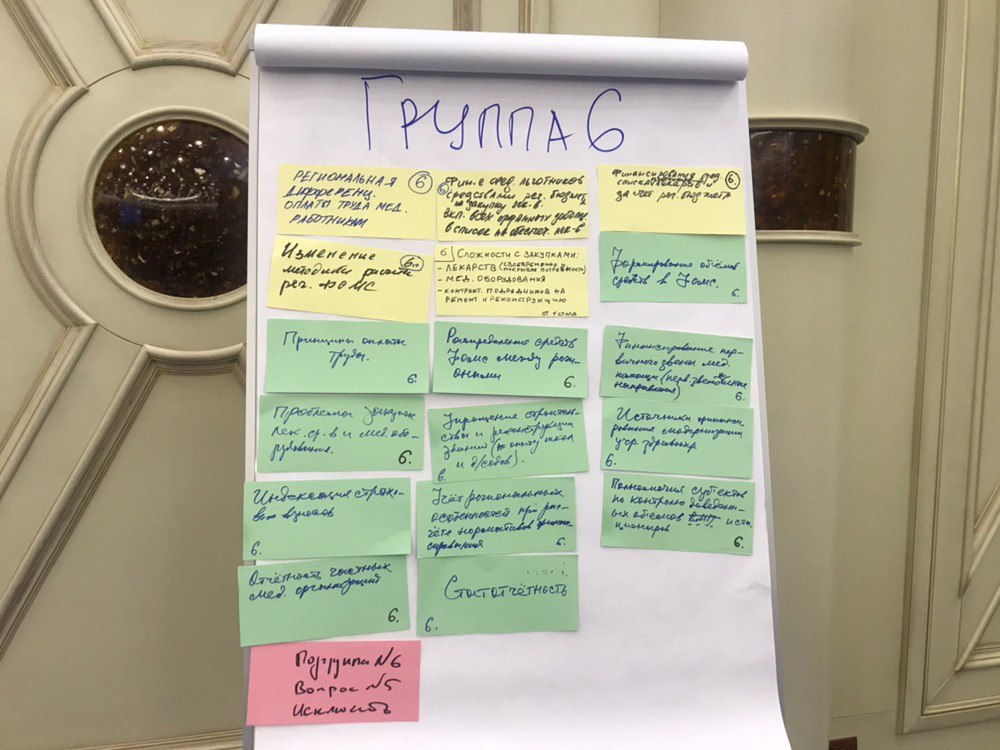 ГРУППА 6
РЕГИОНАЛЬНАЯ 6
ДИФФЕРЕНЦ.
ОПЛАТЫ ТРУДА МЕД.
РАБОТНИКАМ
6 Фин. е фед. льготников
средствами рег. бюджета
на закупку лек. в.
вкл. всех орфанных забол.
в список на обеспеч. лек-в
Финансирования 6.
списка лекарств
за счет рег. бюджета
Изменение 6
методики расчета
рег. ФОМС
6 СЛОЖНОСТИ С ЗАКУПКАМИ:
- ЛЕКАРСТВ (СВОЕВРЕМЕННО ПОКРЫВАЮ ПОТРЕБНОСТЬ)
- МЕД. ОБОРУДОВАНИЯ
- КОНТРАКТ. ПОДРЯДЧИКОВ НА
РЕМОНТ И РЕКОНСТРУКЦИЮ
ОТ 1 СТОЛА
Формирование объёмов
средств в Фомс.
6.
Принципы оплаты
труда.
6.
Распределение средств
Фомс между реги-
онами
6.
Финансирование пер-
вичного звена мед.
помощи (перв. звено
направления)
6.
Проблемы закупок
лек. ср. в и мед. обо-
рудования.
6.
Упрощение строитель-
ства и реконструкции
зданий (по опыту школ
и д/садов).
6.
Источники финанси-
рования модернизации
учр. здравоохр.
6.
Индексация страхо-
вых взносов
6.
Учёт региональных
особенностей при рас-
чёте нормативов финан-
сирования
6.
Полномочия субъектов
по контролю доведен-
ных объемов ВМП и ста-
ционаров
6.
Отчётность частных
мед. организаций
6.
Статотчётность
6.
Подгруппа №6
Вопрос №5
Исключить